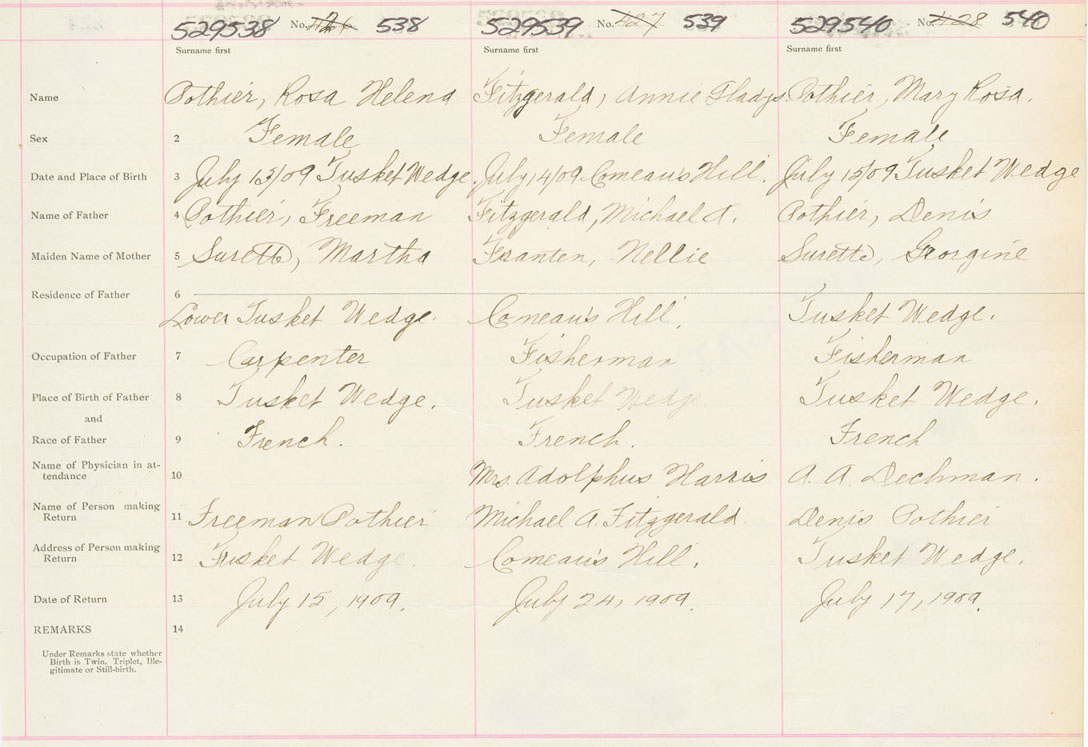 529538 No. 538 529539 No. 539 529540 No. 540
Surname first Surname first Surname first
Name Pothier, Rosa Helena Fitzgerald, Annie Gladys Pothier, Mary Rosa.
Sex 2 Female Female Female
Date and Place of Birth 3 July 13/09 Tusket Wedge. July 14/09 Comeau's Hill. July 15/09 Tusket Wedge
Name of Father 4 Pothier, Freeman Fitzgerald, Michael A. Pothier, Denis
Maiden Name of Mother 5 Surette, Martha Nellie Surette, Georgine
Residence of Father 6
Lower Tusket Wedge. Comeau's Hill. Tusket Wedge.
Occupation of Father 7 Carpenter Fisherman Fisherman
Place of Birth of Father 8 Tusket Wedge. Tusket Wedge Tusket Wedge.
and
Race of Father 9 French. French. French
Name of Physician in at-
tendance 10 Mrs. Adolphus Harris A. A. Dechman.
Name of Person making
Return 11 Freeman Pothier Michael A. Fitzgerald. Denis Pothier
Address of Person making
Return 12 Tusket Wedge. Comeau's Hill. Tusket Wedge.
Date of Return 13 July 15, 1909. July 24, 1909. July 17, 1909.
REMARKS 14
Under Remarks state whether
Birth is Twin, Triplet, Ille-
gitimate or Still-birth.